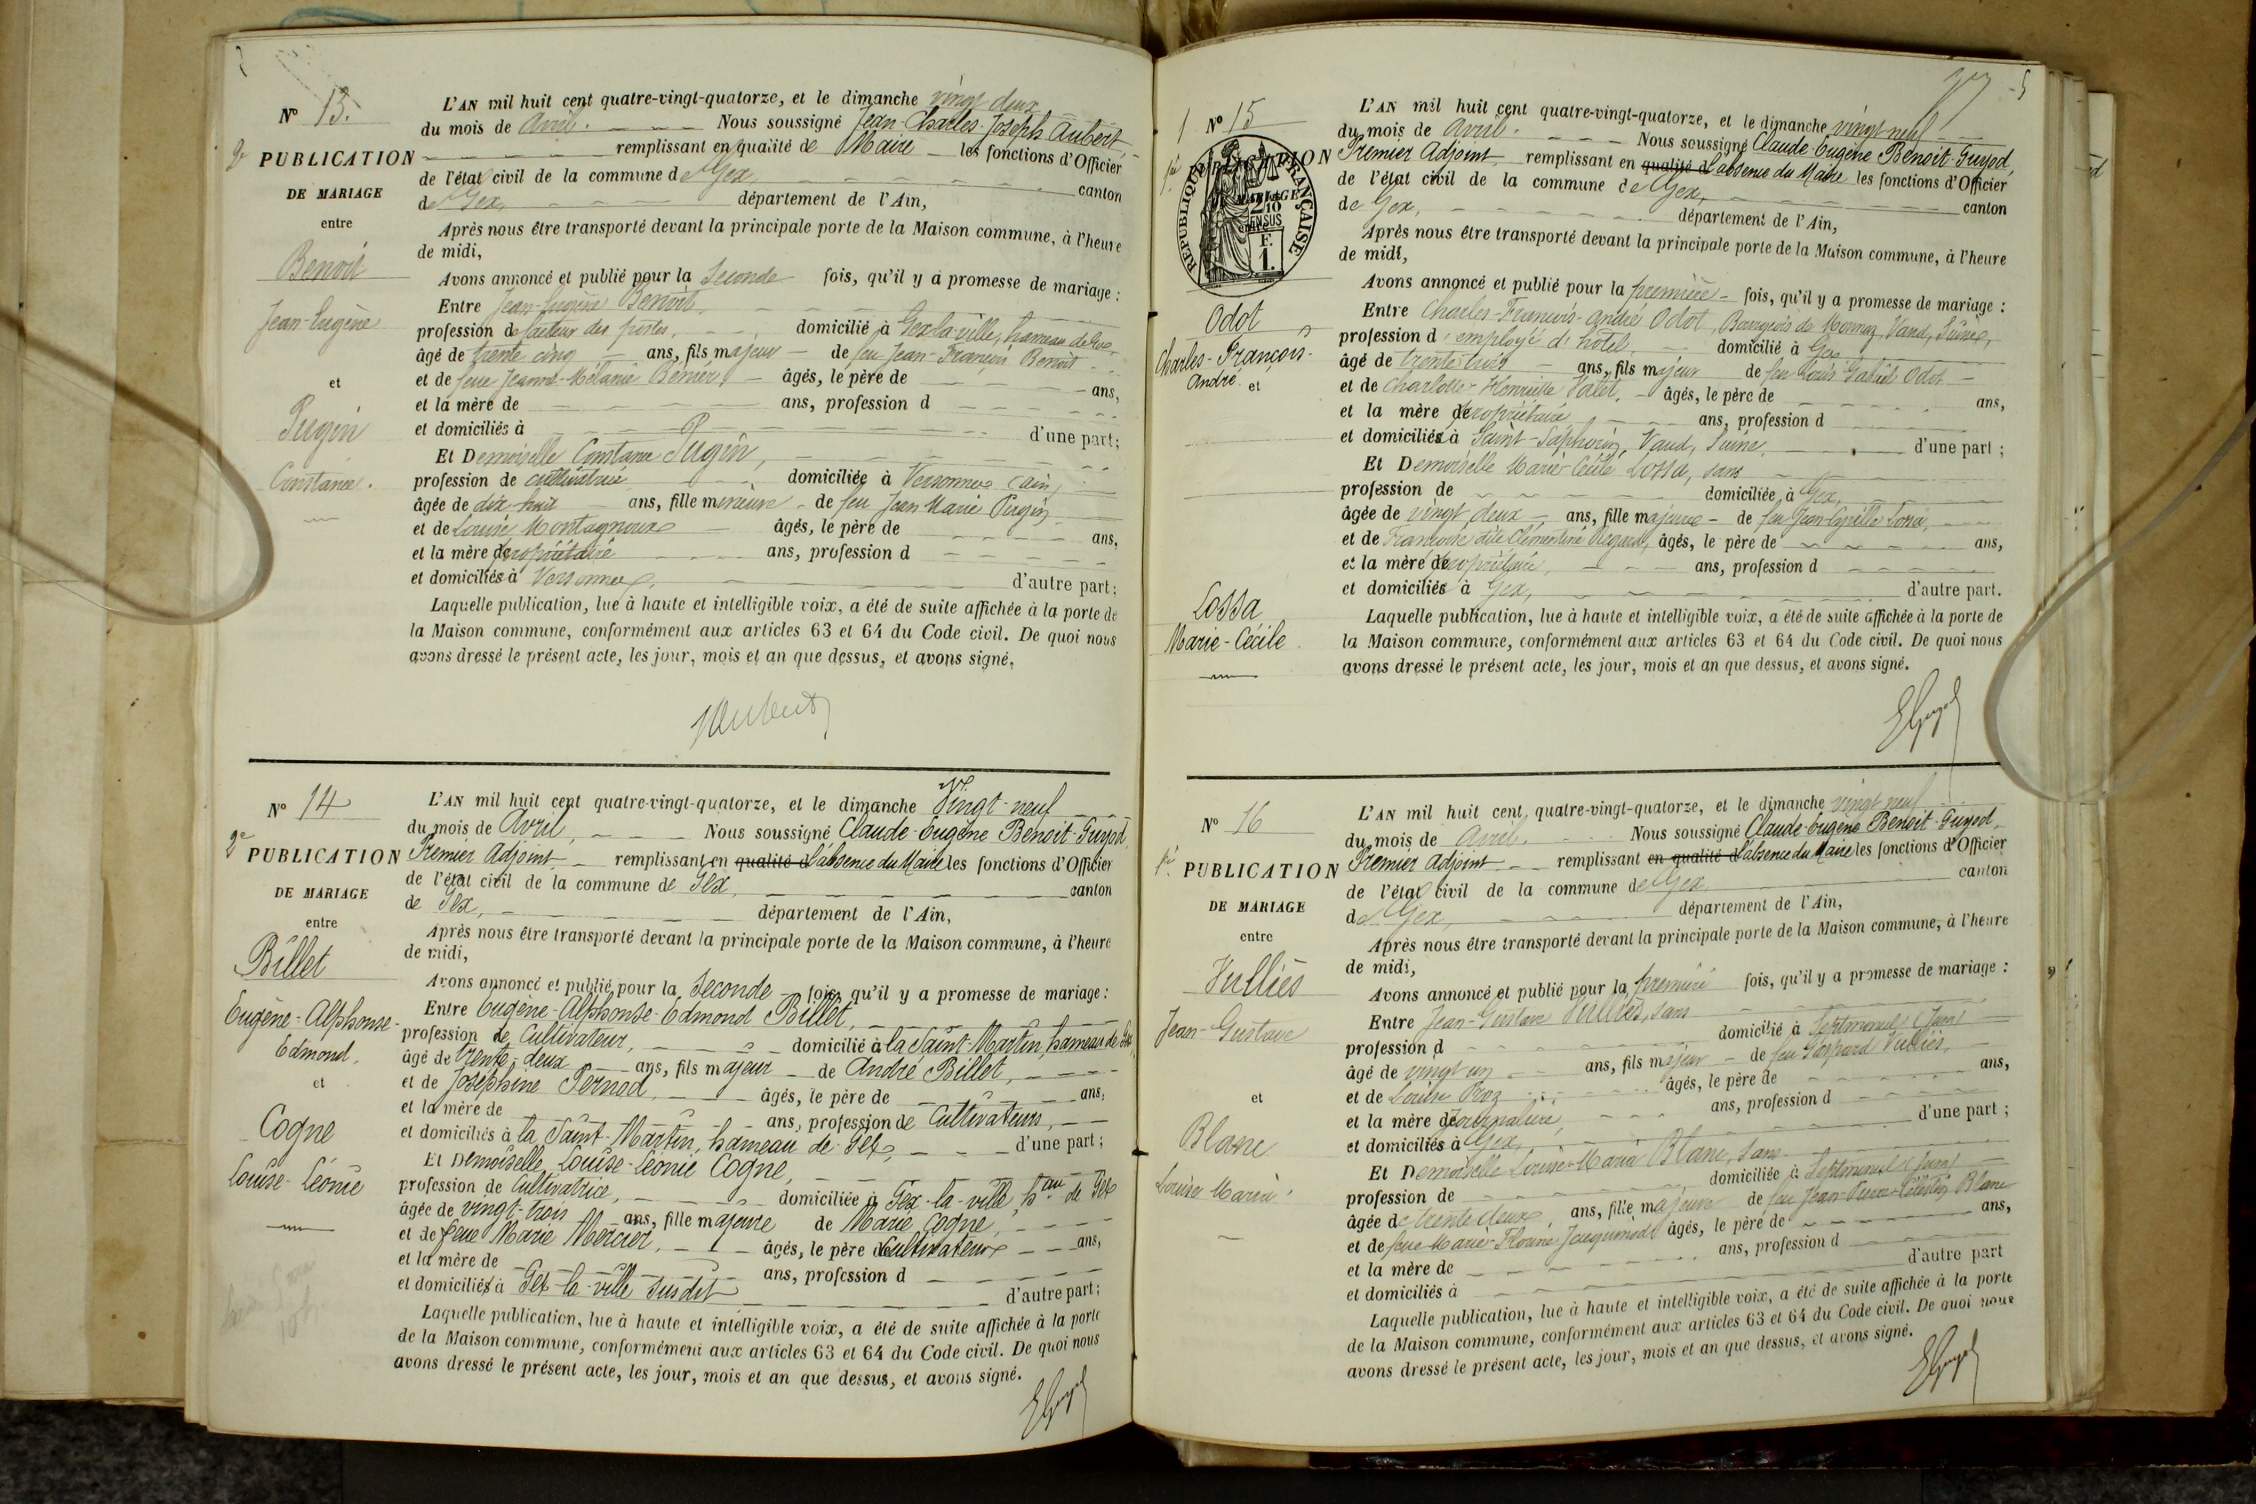 N° 13.
2e PUBLICATION
DE MARIAGE
entre
Benoit
Jean-Eugène
et
Pugin
Constance.
L'AN mil huit cent quatre-vingt-quatorze, et le dimanche vingt deux
du mois de Avril. Nous soussigné Jean-Charles-Joseph Aubert,
remplissant en qualité de Maire les fonctions d'Officier
de l'état civil de la commune de Gex, canton
de Gex, département de l'Ain,
Après nous être transporté devant la principale porte de la Maison commune, à l'heure
de midi,
Avons annoncé et publié pour la Seconde fois, qu'il y a promesse de mariage :
Entre Jean-Eugène Benoit,
profession de facteur des postes, domicilié à Gex-la-ville, hameau de Gex,
âgé de trente cinq ans, fils majeur de feu Jean-François Benoit
et de feue Jeanne-Mélanie Bénier, âgés, le père de ans,
et la mère de ans, profession d
et domiciliés à d'une part;
Et Demoiselle Constance Pugin,
profession de cultivatrice domiciliée à Versonnex (Ain)
âgée de dix-huit ans, fille mineure de feu Jean Marie Pugin
et de Louise Montagnoux âgés, le père de ans,
et la mère de propriétaire ans, profession d
et domiciliés à Versonnex, d'autre part;
Laquelle publication, lue à haute et intelligible voix, a été de suite affichée à la porte de
la Maison commune, conformément aux articles 63 et 64 du Code civil. De quoi nous
avons dressé le présent acte, les jour, mois et an que dessus, et avons signé.
JAubert
N° 14
2e PUBLICATION
DE MARIAGE
entre
Billet
Eugène-Alphonse-
Edmond.
et
Cogne
Louise-Léonie
L'AN mil huit cent quatre-vingt-quatorze, et le dimanche Vingt-neuf
du mois de Avril, Nous soussigné Claude-Eugène Benoit-Guyod,
Premier Adjoint remplissant en qualité d l'absence du Maire les fonctions d'Officier
de l'état civil de la commune de Gex, canton
de Gex, département de l'Ain,
Après nous être transporté devant la principale porte de la Maison commune, à l'heure
de midi,
Avons annoncé et publié pour la seconde fois, qu'il y a promesse de mariage :
Entre Eugène-Alphonse-Edmond Billet,
profession de Cultivateur, domicilié à la Saint-Martin, hameau de Gex
âgé de trente-deux ans, fils majeur de André Billet,
et de Joséphine Pernod, âgés, le père de ans,
et la mère de ans, profession de Cultivateurs,
et domiciliés à la Saint-Martin, hameau de Gex, d'une part;
Et Demoiselle Louise-Léonie Cogne,
profession de Cultivatrice, domiciliée à Gex-la-ville, hau de Gex
âgée de vingt-trois ans, fille majeure de Marie Cogne,
et de feue Marie Mercier, âgés, le père de Cultivateur ans,
et la mère de ans, profession d
et domiciliés à Gex-la-ville susdit d'autre part;
Laquelle publication, lue à haute et intelligible voix, a été de suite affichée à la porte
de la Maison commune, conformément aux articles 63 et 64 du Code civil. De quoi nous
avons dressé le présent acte, les jour, mois et an que dessus, et avons signé.
EGuyod
N° 15
1re PUBLICATION
MARIAGE
RÉPUBLIQUE FRANÇAISE
2/10
EN SUS
F.
1.
Odot
Charles-François-
André.
et
Lossa
Marie-Cécile
L'AN mil huit cent quatre-vingt-quatorze, et le dimanche vingt neuf
du mois de Avril. Nous soussigné Claude-Eugène Benoit-Guyod,
Premier Adjoint remplissant en qualité d l'absence du Maire les fonctions d'Officier
de l'état civil de la commune de Gex, canton
de Gex, département de l'Ain,
Après nous être transporté devant la principale porte de la Maison commune, à l'heure
de midi,
Avons annoncé et publié pour la première fois, qu'il y a promesse de mariage :
Entre Charles-François-André Odot, Bourgeois de Mornaz, Vaud, Suisse,
profession d'employé d'hôtel, domicilié à Gex
âgé de trente trois ans, fils majeur de feu Louis Gabriel Odot
et de Charlotte-Henriette Valet, âgés, le père de ans,
et la mère de propriétaire, ans, profession d
et domiciliés à Saint-Saphorin, Vaud, Suisse, d'une part ;
Et Demoiselle Marie-Cécile Lossa, sans
profession de domiciliée à Gex,
âgée de vingt deux ans, fille majeure de feu Jean-Cyrille Lossa,
et de Françoise dite Clémentine Regard, âgés, le père de ans,
et la mère de propriétaire, ans, profession d
et domiciliés à Gex, d'autre part.
Laquelle publication, lue à haute et intelligible voix, a été de suite affichée à la porte de
la Maison commune, conformément aux articles 63 et 64 du Code civil. De quoi nous
avons dressé le présent acte, les jour, mois et an que dessus, et avons signé.
EGuyod
N° 16
1re PUBLICATION
DE MARIAGE
entre
Vulliès
Jean-Gustave
et
Blanc
Louise Maria
L'AN mil huit cent quatre-vingt-quatorze, et le dimanche vingt neuf
du mois de Avril. Nous soussigné Claude-Eugène Benoit-Guyod,
Premier Adjoint remplissant en qualité d l'absence du Maire les fonctions d'Officier
de l'état civil de la commune de Gex canton
de Gex, département de l'Ain,
Après nous être transporté devant la principale porte de la Maison commune, à l'heure
de midi,
Avons annoncé et publié pour la première fois, qu'il y a promesse de mariage :
Entre Jean-Gustave Vulliès, sans
profession d domicilié à Septmoncel (Jura)
âgé de vingt un ans, fils majeur de feu Gaspard Vulliès,
et de Louise Proz âgés, le père de ans,
et la mère de Journalière, ans, profession d
et domiciliés à Gex, d'une part ;
Et Demoiselle Louise-Maria Blanc, sans
profession de domiciliée à Septmoncel (Jura)
âgée de trente deux, ans, fille majeure de feu Jean-Pierre-Célestin Blanc
et de feue Marie-Florine Jacquemod âgés, le père de ans,
et la mère de ans, profession d
et domiciliés à d'autre part
Laquelle publication, lue à haute et intelligible voix, a été de suite affichée à la porte
de la Maison commune, conformément aux articles 63 et 64 du Code civil. De quoi nous
avons dressé le présent acte, les jour, mois et an que dessus, et avons signé.
EGuyod